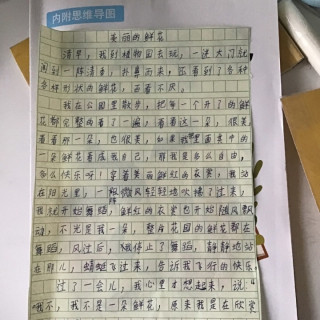 内附思维导图
美丽的鲜花
清早，我到植物园去玩，一进大门就
闻到一阵清香，扑鼻而来，还看到了各种
各样形状的鲜花，百看不厌。
我在公园里散步，把每一个开了的鲜
花都完整的看了一遍，看着这一朵，很美
看看那一朵，也很美，如果我把里面其中的
一朵鲜花看成我自己，那我是多么自由，
多么快乐呀！穿着美丽鲜红的衣裳，我站
在阳光里，一阵微风轻轻地吹拂了过来，
我就开始舞蹈，鲜红的衣裳也开始随风飘
动，不光是我一朵，整片花园的鲜花都在
舞蹈，风过后，我停止了舞蹈，静静地站
在那儿，蜻蜓飞过来，告诉我飞行的快乐
过了一会儿，我心里才想起来，说“
我不，我不是一朵鲜花，原来我是在欣赏